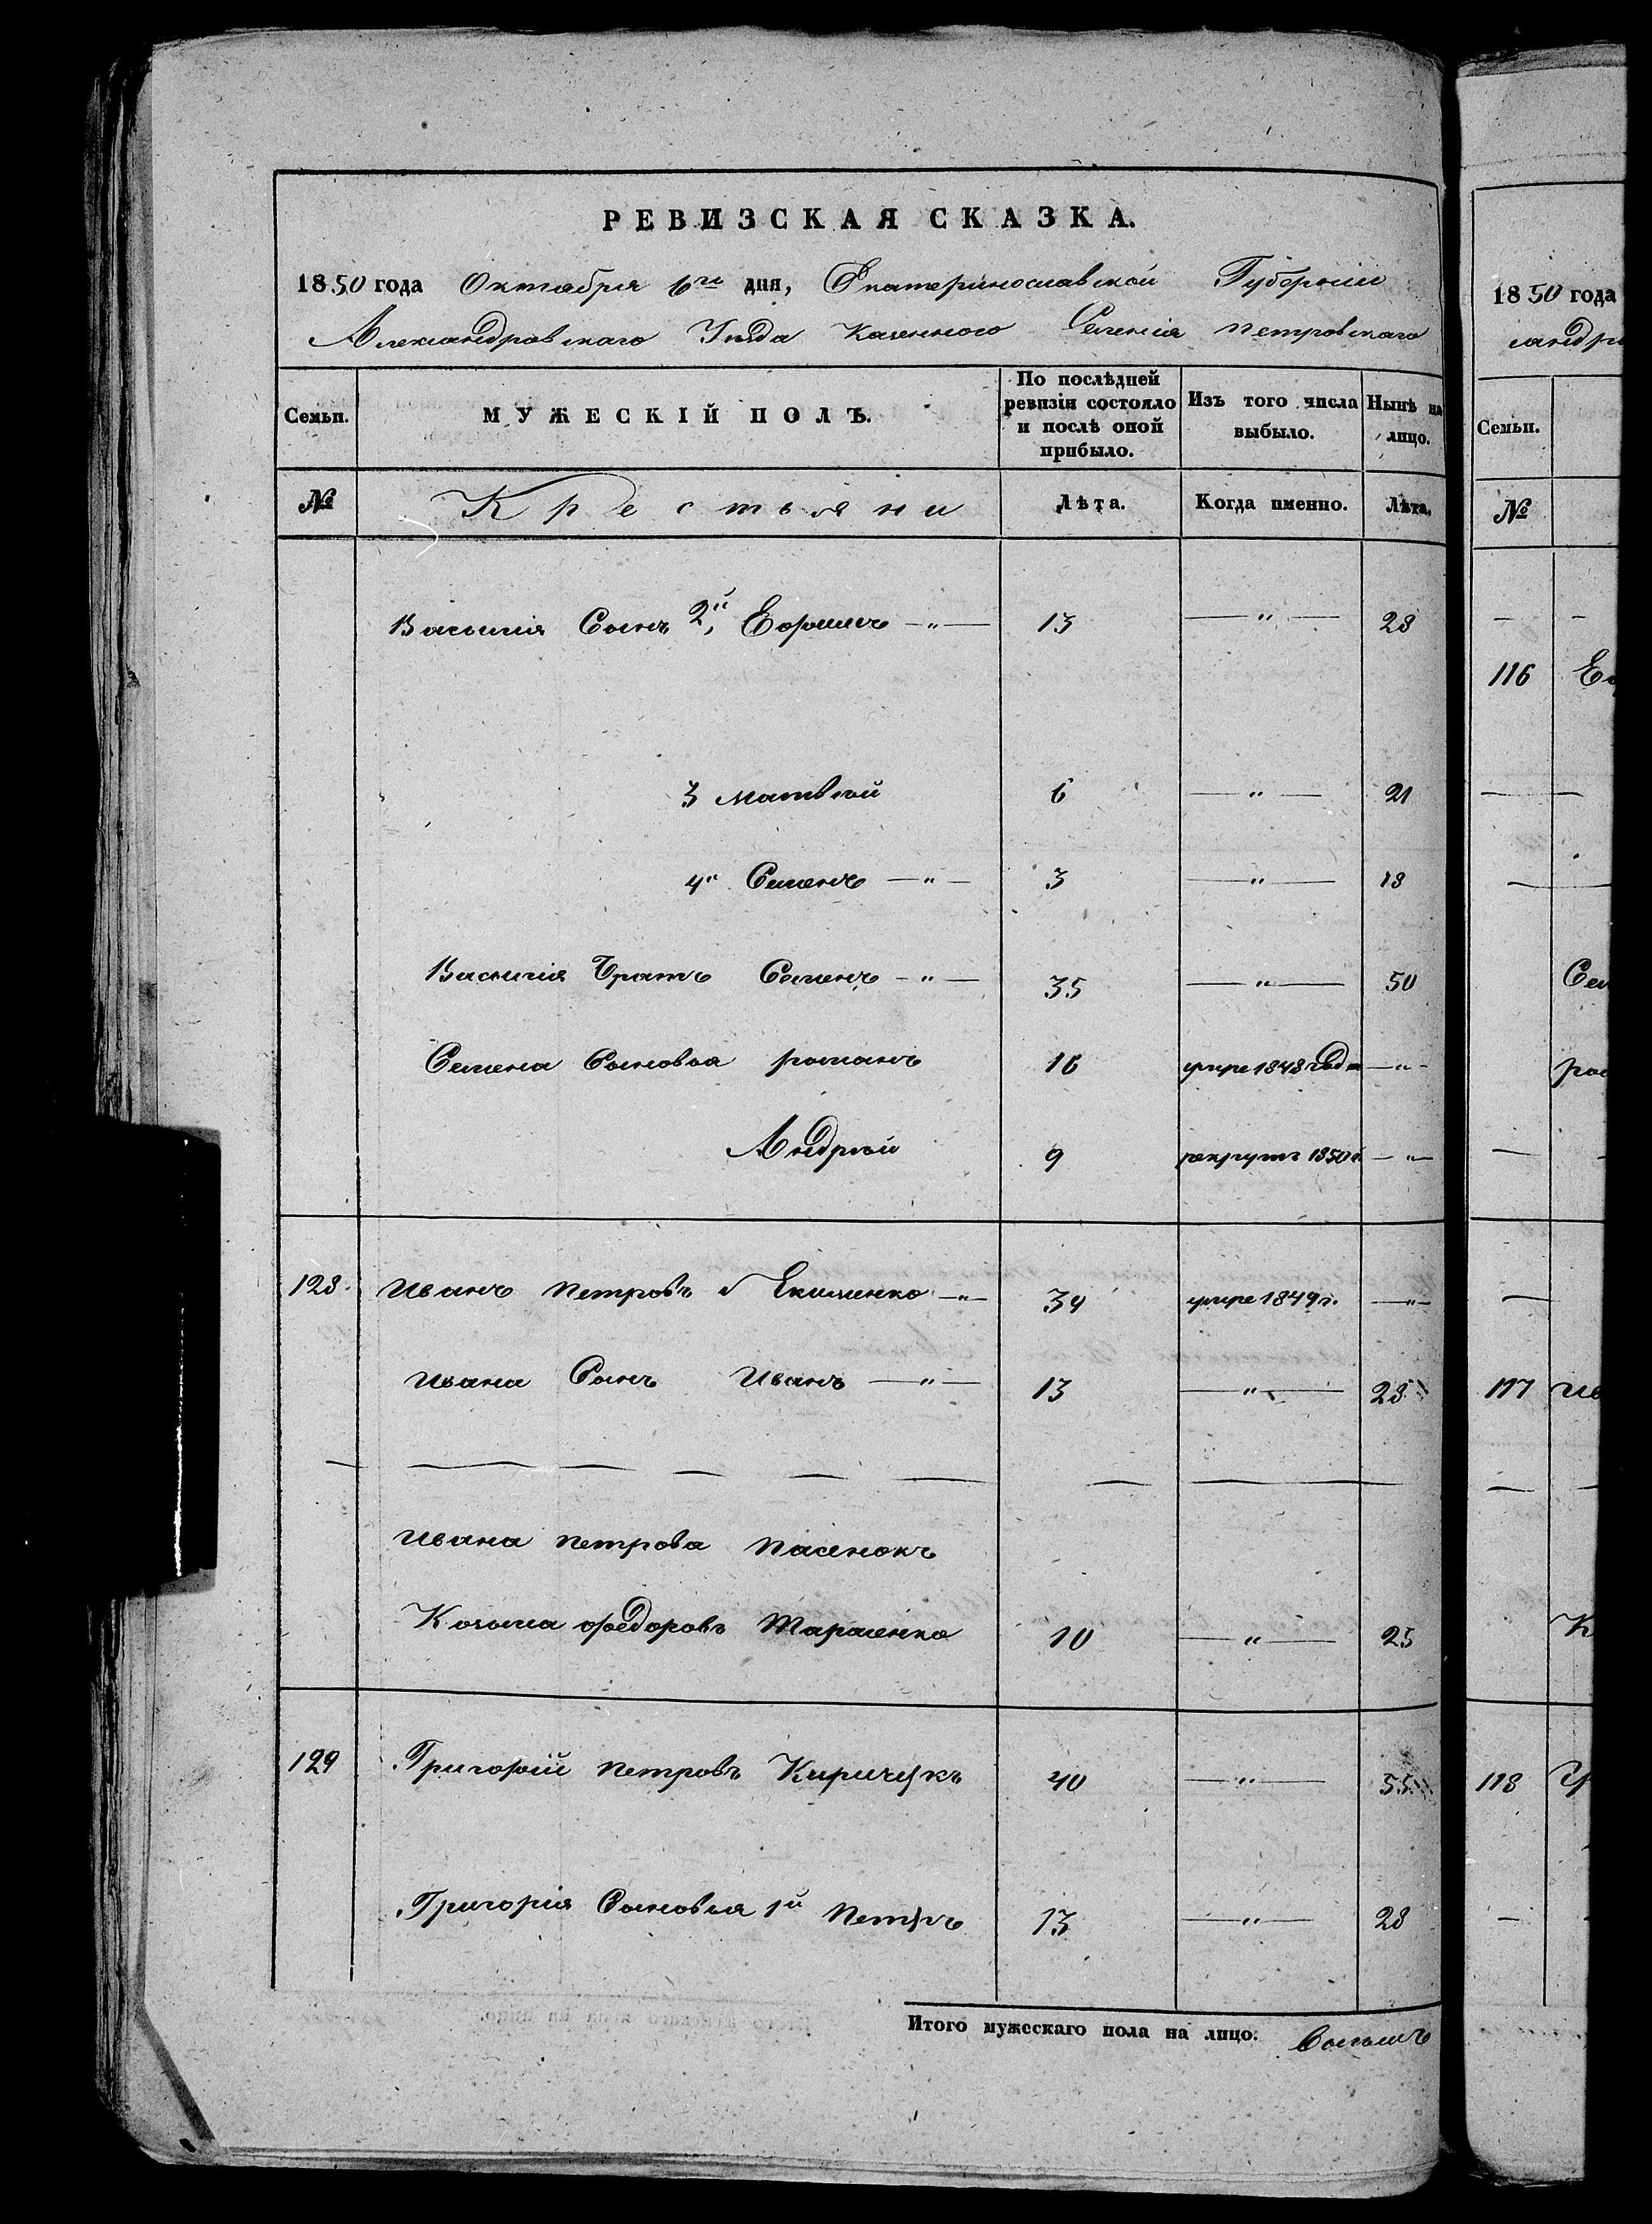 РЕВИЗСКАЯ СКАЗКА.
1850 года Октября 6го дня, Екатеринославской Губерніи
Александровскаго Уезда Казенного Селенія петровскаго
Семьи. МУЖЕСКІЙ ПОЛЪ. По послѣдней ревизіи состояло и послѣ оной прибыло. Изъ того числа выбыло. Нынѣ на лицо.
№ Крестьяни Лѣта. Когда именно. Лѣта.
Василія Сынъ 2й, Ефимъ —"— 13 —"— 28
3 матвѣй 6 —"— 21
4й Семенъ —"— 3 —"— 18
Василія Братъ Семенъ —"— 35 —"— 50
Семена Сыновья романъ 16 умре 1848 года —"—
Андрѣй 9 рекрутъ 1850 г. —"—
128. иванъ петровъ Екименко —"— 34 умре 1849 г. —"—
ивана Сынъ иванъ —"— 13 —"— 28
ивана петрова пасенокъ
Козьма федоровъ Тараненко 10 —"— 25
129 Григорій петровъ Киричукъ 40 —"— 55
Григорія Сыновья 1й петръ 13 —"— 28
Итого мужескаго пола на лицо. Восьмъ
1850 года
сандро
Семьи.
№
116 Е
Сем
ро
117 ив
К
118 Г